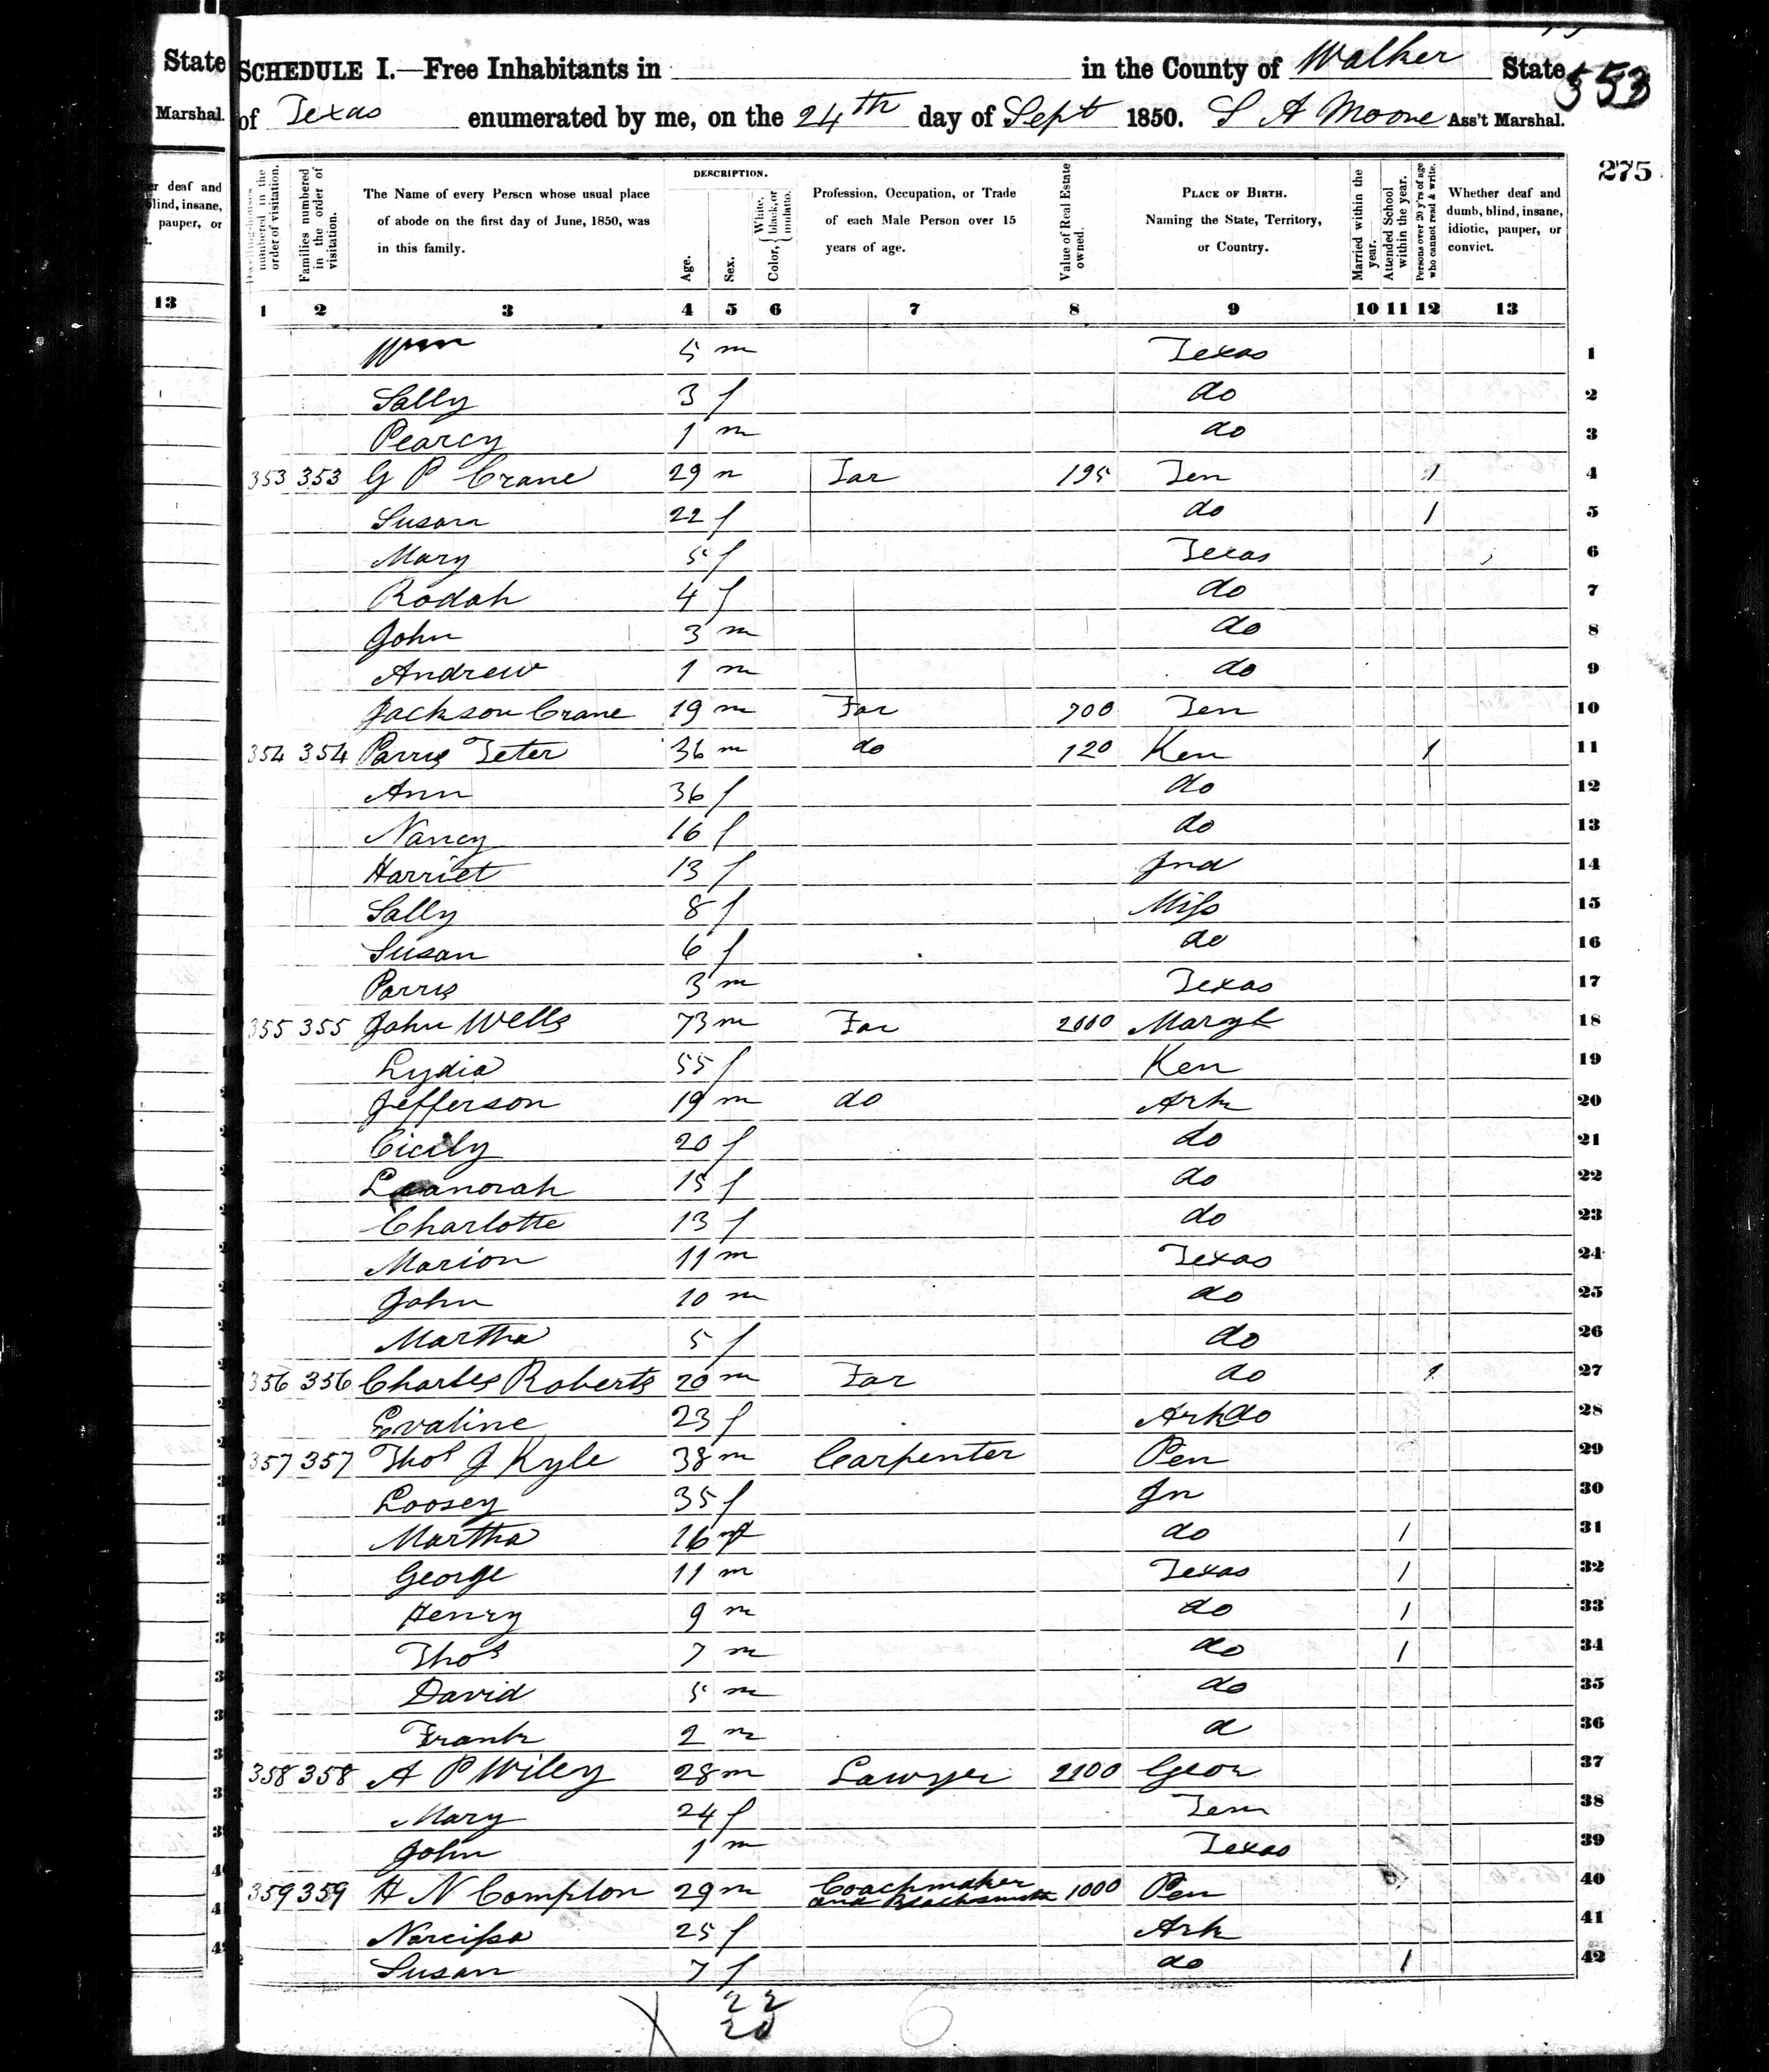 State
Marshal.
deaf and
blind, insane,
pauper, or
13
553
SCHEDULE I.—Free Inhabitants in in the County of Walker State
of Texas enumerated by me, on the 24th day of Sept 1850. S A Moore Ass't Marshal.
275
Dwelling-houses numbered in the order of visitation.
Families numbered in the order of visitation.
The Name of every Person whose usual place of abode on the first day of June, 1850, was in this family.
DESCRIPTION.
Age.
Sex.
Color, White, black, or mulatto.
Profession, Occupation, or Trade of each Male Person over 15 years of age.
Value of Real Estate owned.
PLACE OF BIRTH. Naming the State, Territory, or Country.
Married within the year.
Attended School within the year.
Persons over 20 y'rs of age who cannot read & write.
Whether deaf and dumb, blind, insane, idiotic, pauper, or convict.
1 2 3 4 5 6 7 8 9 10 11 12 13
Wm 5 m Texas 1
Sally 3 f do 2
Pearcy 1 m do 3
353 353 G P Crane 29 m Far 195 Ten 1 4
Susan 22 f do 1 5
Mary 5 f Texas 6
Rodah 4 f do 7
John 3 m do 8
Andrew 1 m do 9
Jackson Crane 19 m Far 700 Ten 10
354 354 Parris Teter 36 m do 120 Ken 1 11
Ann 36 f do 12
Nancy 16 f do 13
Harriet 13 f Ind 14
Sally 8 f Miss 15
Susan 6 f do 16
Parris 3 m Texas 17
355 355 John Wells 73 m Far 2000 Maryl 18
Lydia 55 f Ken 19
Jefferson 19 m do Ark 20
Cicily 20 f do 21
Leanorah 15 f do 22
Charlotte 13 f do 23
Marion 11 m Texas 24
John 10 m do 25
Martha 5 f do 26
356 356 Charles Roberts 20 m Far do 1 27
Evaline 23 f Ark do 28
357 357 Thos J Kyle 38 m Carpenter Pen 29
Loosey 35 f In 30
Martha 16 f do 1 31
George 11 m Texas 1 32
Henry 9 m do 1 33
Thos 7 m do 1 34
David 5 m do 35
Frank 2 m d 36
358 358 A P Wiley 28 m Lawyer 2100 Geor 37
Mary 24 f Tenn 38
John 1 m Texas 39
359 359 H N Compton 29 m Coachmaker and Blacksmith 1000 Pen 40
Narcissa 25 f Ark 41
Susan 7 f do 1 42
22
20